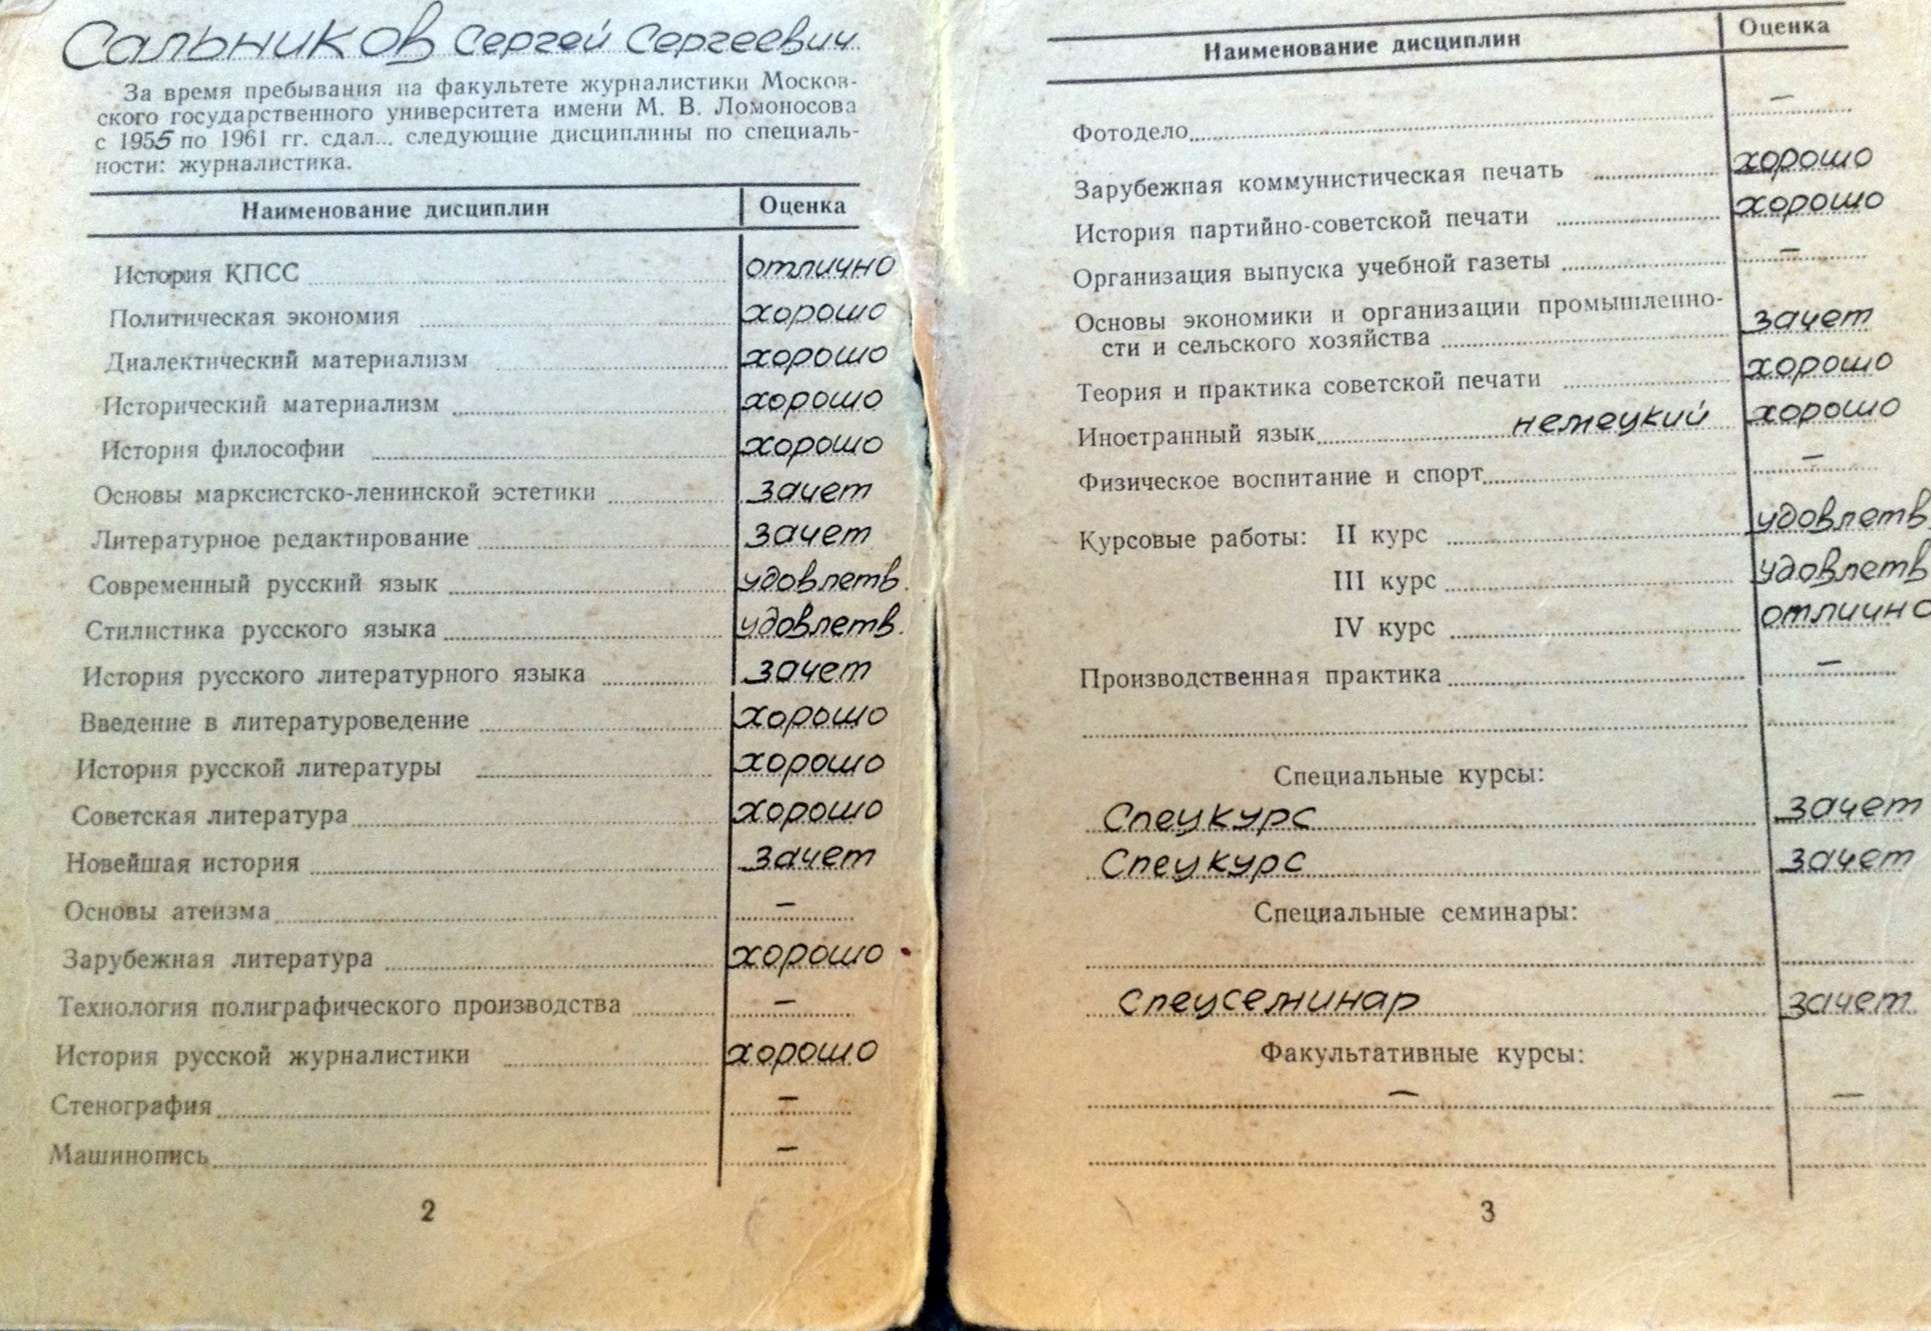 Сальников Сергей Сергеевич
За время пребывания на факультете журналистики Москов-
ского государственного университета имени М. В. Ломоносова
с 1955 по 1961 гг. сдал... следующие дисциплины по специаль-
ности: журналистика.
Наименование дисциплин Оценка
История КПСС отлично
Политическая экономия хорошо
Диалектический материализм хорошо
Исторический материализм хорошо
История философии хорошо
Основы марксистско-ленинской эстетики зачет
Литературное редактирование зачет
Современный русский язык удовлетв.
Стилистика русского языка удовлетв.
История русского литературного языка зачет
Введение в литературоведение хорошо
История русской литературы хорошо
Советская литература хорошо
Новейшая история зачет
Основы атеизма –
Зарубежная литература хорошо
Технология полиграфического производства –
История русской журналистики хорошо
Стенография –
Машинопись –
2
Наименование дисциплин Оценка
Фотодело –
Зарубежная коммунистическая печать хорошо
История партийно-советской печати хорошо
Организация выпуска учебной газеты –
Основы экономики и организации промышленно-
сти и сельского хозяйства зачет
Теория и практика советской печати хорошо
Иностранный язык немецкий хорошо
Физическое воспитание и спорт –
Курсовые работы: II курс удовлетв
III курс удовлетв
IV курс отлично
Производственная практика –
Специальные курсы:
Спецкурс зачет
Спецкурс зачет
Специальные семинары:
Спецсеминар зачет
Факультативные курсы:
– –
3